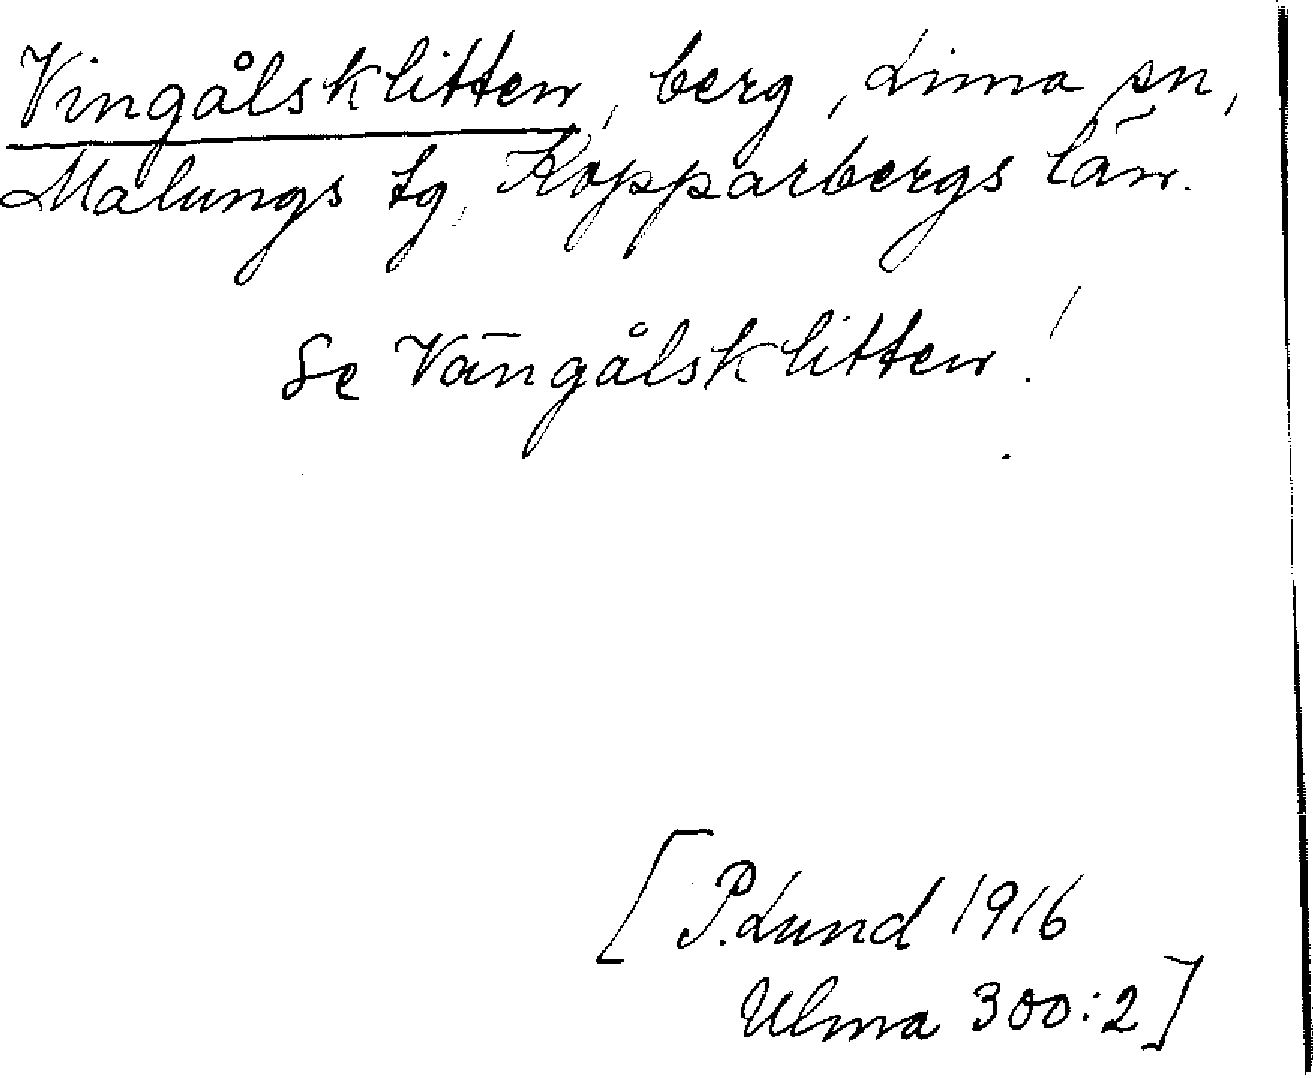 Vingålsklitten, berg, Lima sn,
Malungs tg, Kopparbergs län.
Se Vängålsklitten!
[P. Lund 1916
Ulma 300:2]